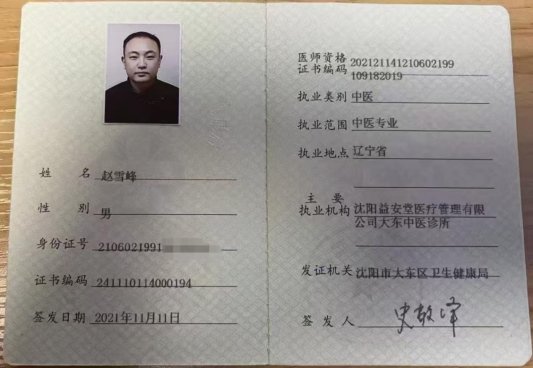 姓名 赵雪峰
性别 男
身份证号 2106021991
证书编码 241110114000194
签发日期 2021年11月11日
医师资格
证书编码 202121141210602199
109182019
执业类别 中医
执业范围 中医专业
执业地点 辽宁省
主要
执业机构 沈阳益安堂医疗管理有限
公司大东中医诊所
发证机关 沈阳市大东区卫生健康局
签发人 史敬泽